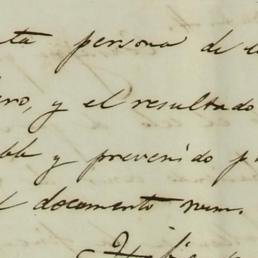 ta persona de
ero, y el resultado
ble y prevenido p
documento num.